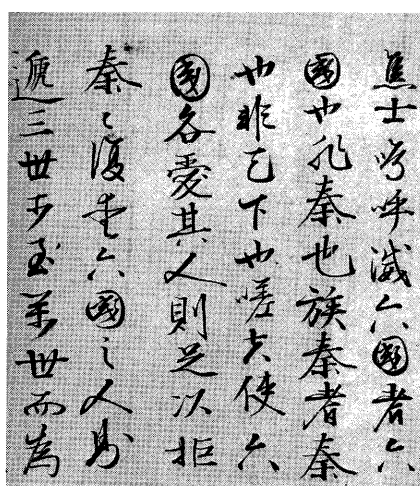 焦土嗚呼滅六國者六
國也非秦也族秦者秦
也非天下也嗟夫使六
國各愛其人則足以拒
秦〻復愛六國之人則
遞三世可至萬世而為